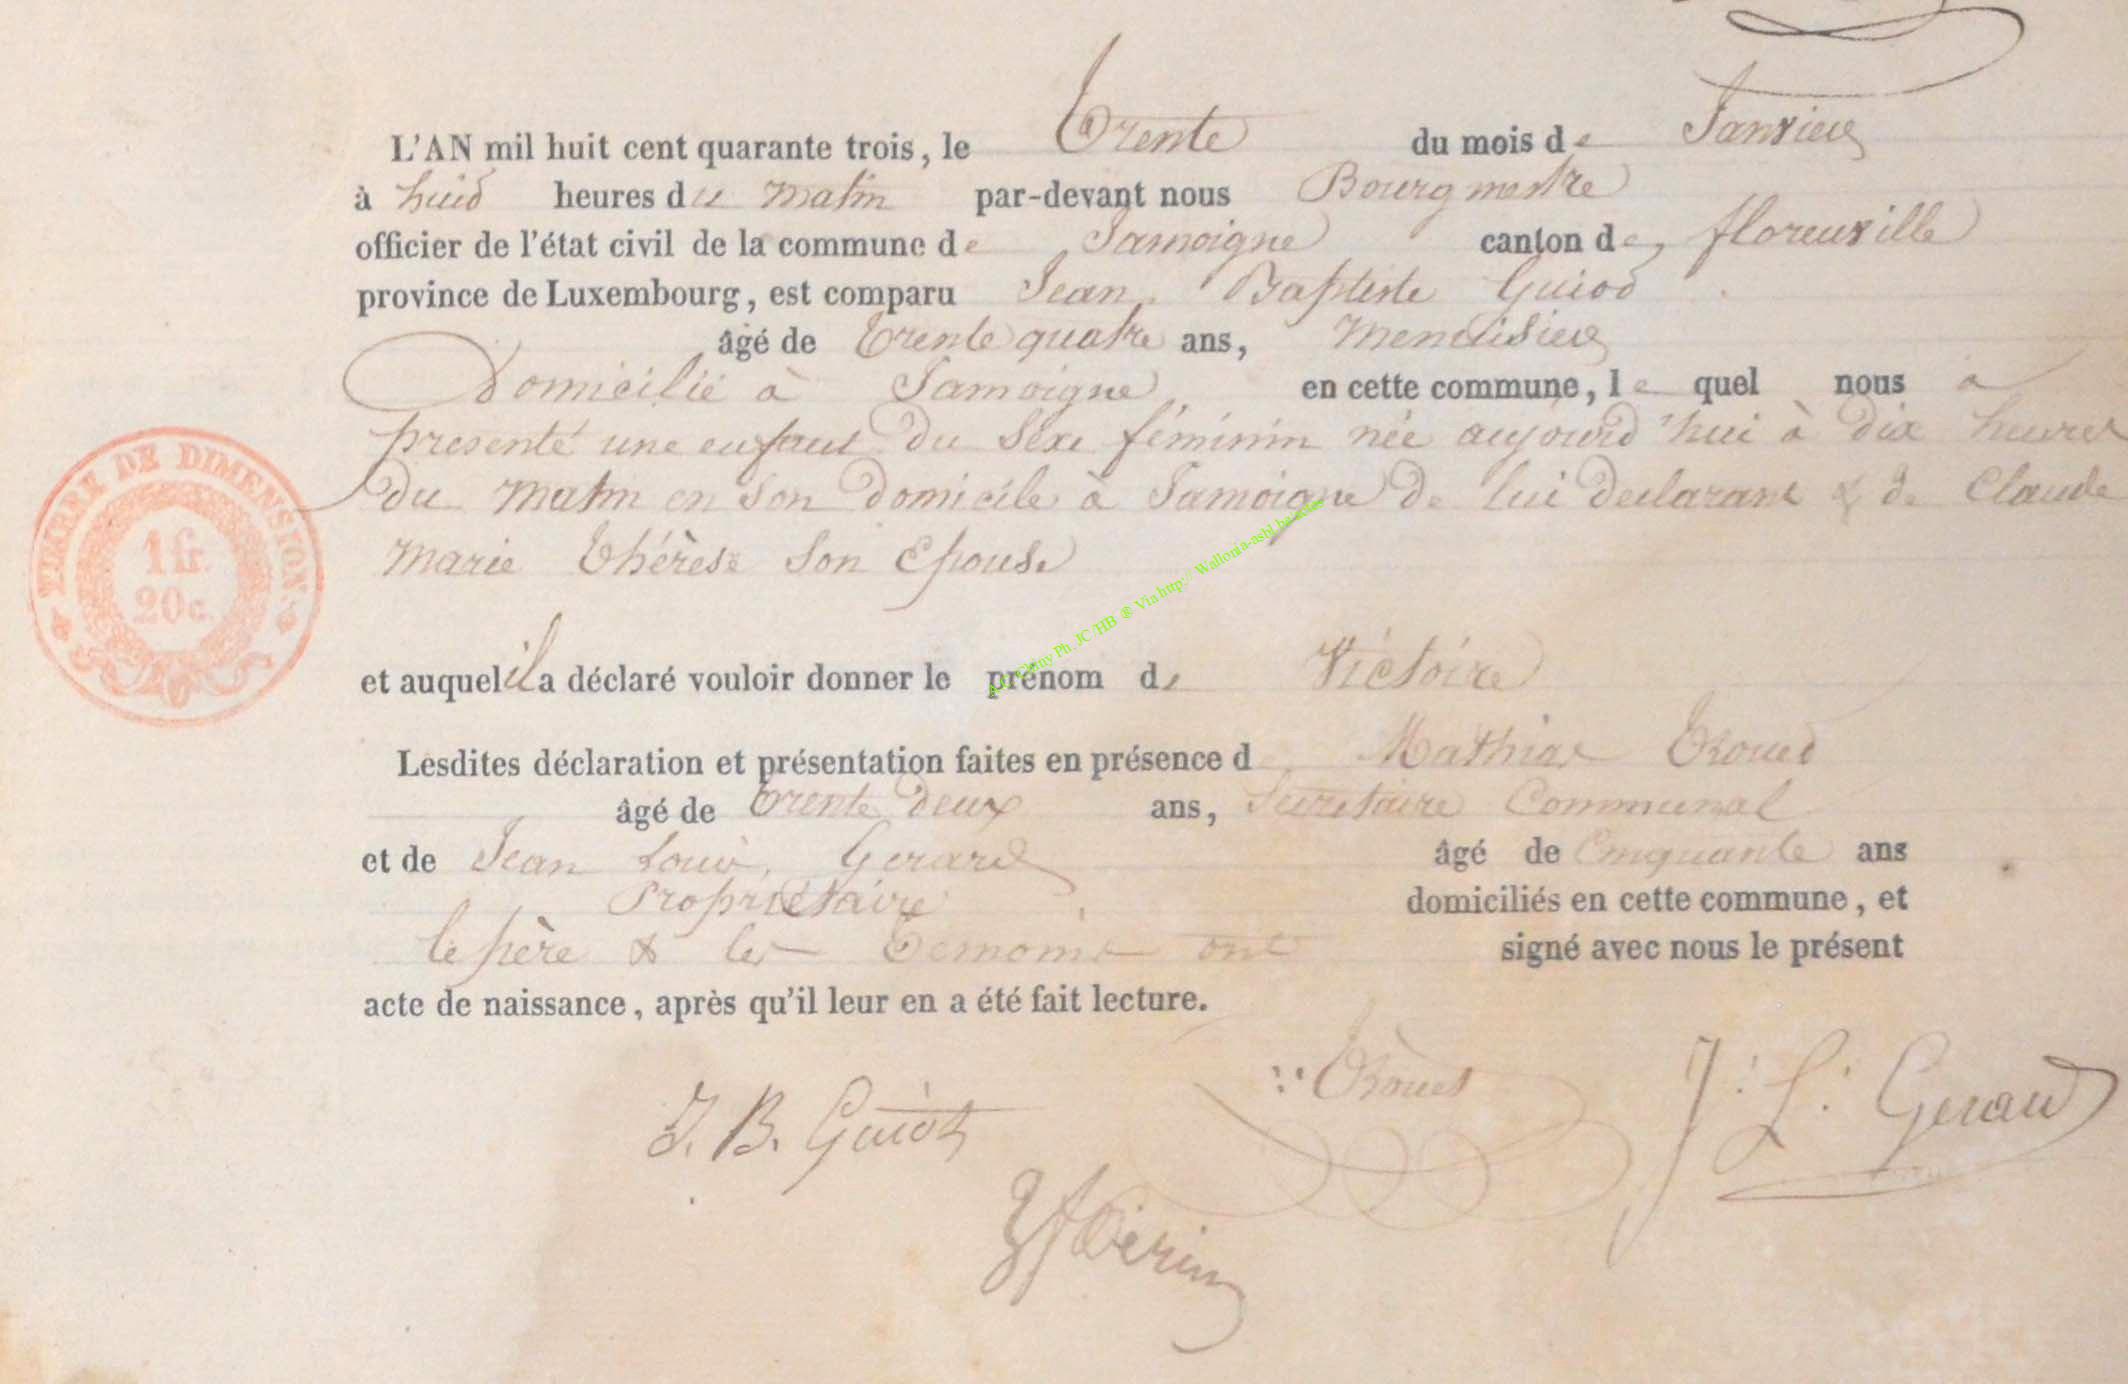 L'AN mil huit cent quarante trois, le Trente du mois de Janvier
à huid heures du matin par-devant nous Bourgmestre
officier de l'état civil de la commune de Jamoigne canton de, florenville
province de Luxembourg, est comparu Jean Baptiste Guiod
âgé de Trente quatre ans, menuisier
Domicilié à Jamoigne en cette commune, le quel nous a
presenté une enfant du sexe féminin née aujourd'hui à dix heures
du matin en son domicile à Jamoigne de lui declarant & de Claude
marie thérèse son Epouse
TIMBRE DE DIMENSION
1 fr.
20 c.
A.C. Chiny Ph. JC/HB ® Via http:// Wallonia-asbl.be
et auquel il a déclaré vouloir donner le prénom de Victoire
Lesdites déclaration et présentation faites en présence d Mathias
âgé de trente deux ans, Secretaire Communal
et de Jean Louis, Gerard âgé de Cinquante ans
Proprietaire domiciliés en cette commune, et
le père & les Temoins ont signé avec nous le présent
acte de naissance, après qu'il leur en a été fait lecture.
J. B. Guiot
J: L: Gerard